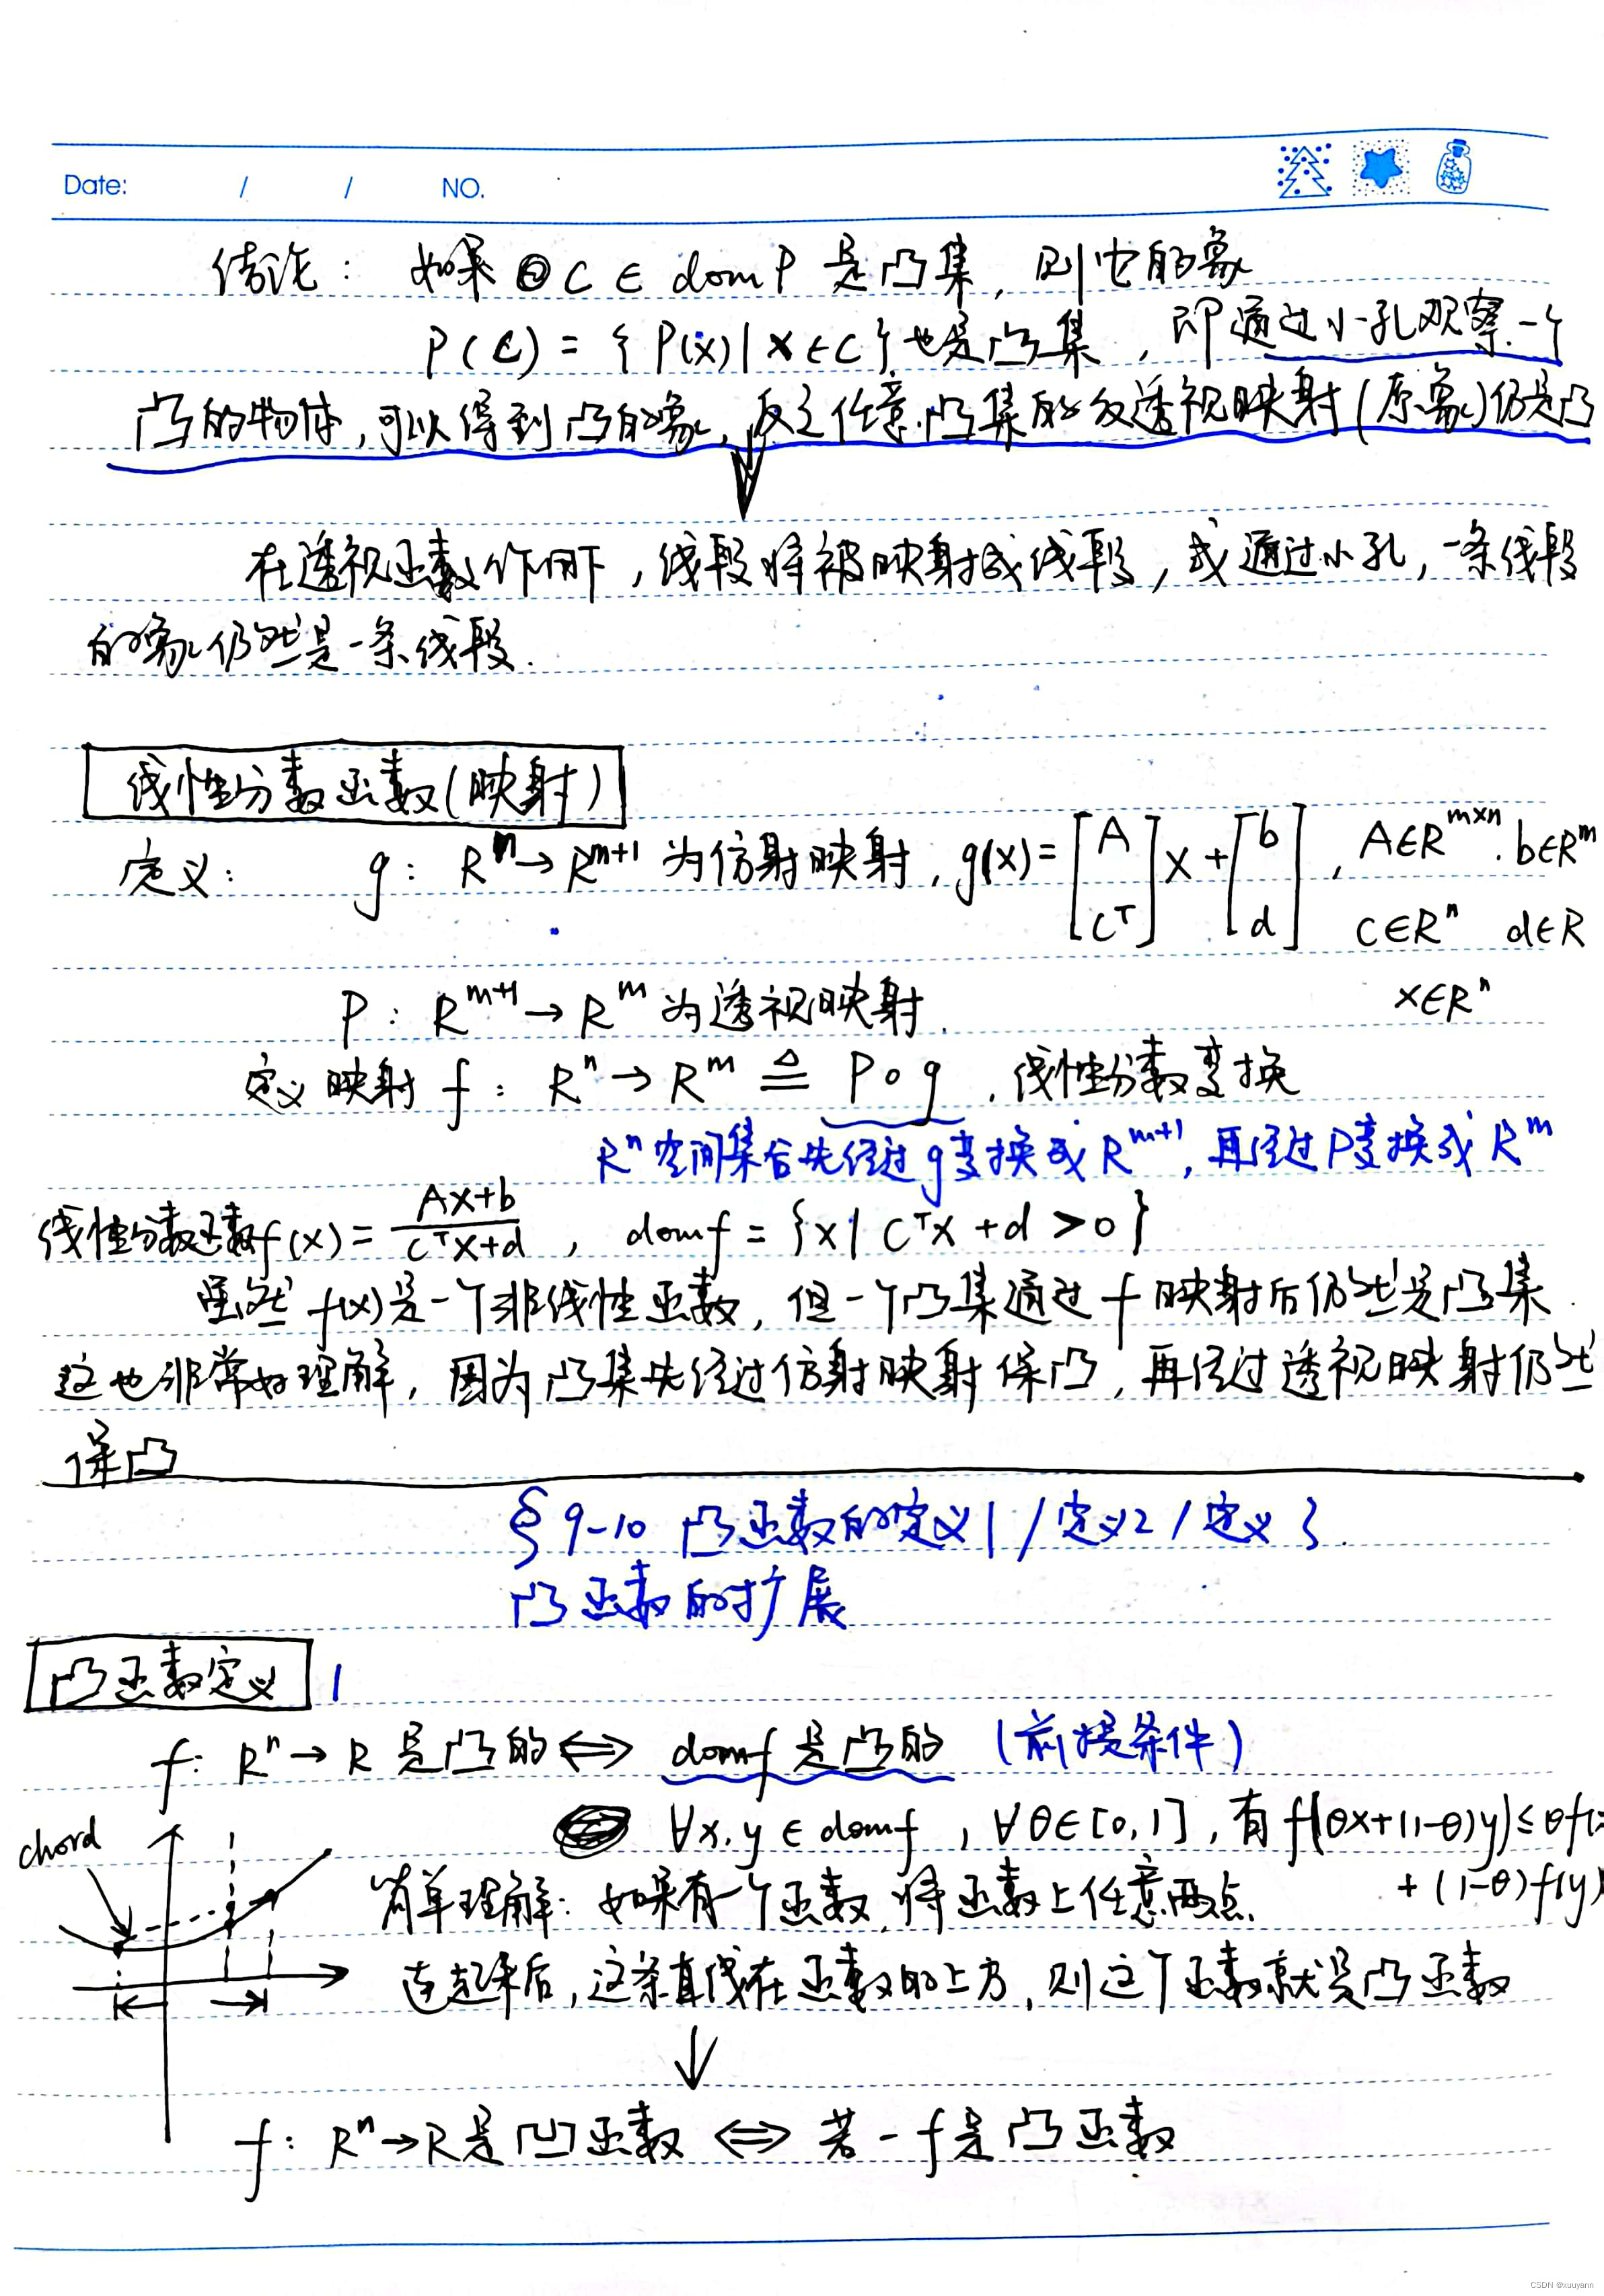 Date: / / NO.
结论: 如果 C ∈ dom P 是凸集, 则它的象
P(C) = { P(x) | x ∈ C } 也是凸集, 即通过小孔观察一个
凸的物体, 可以得到凸的象, 反之任意凸集的反透视映射(原象)仍是凸
在透视函数作用下, 线段将被映射成线段, 或通过小孔, 一条线段
的象仍然是一条线段.
线性分数函数(映射)
定义: g: Rⁿ → Rᵐ⁺¹ 为仿射映射, g(x) = [A; cᵀ] x + [b; d], A∈Rᵐˣⁿ. b∈Rᵐ
c∈Rⁿ d∈R
P: Rᵐ⁺¹ → Rᵐ 为透视映射. x∈Rⁿ
定义映射 f: Rⁿ → Rᵐ ≜ P∘g, 线性分数变换
Rⁿ空间集合先经过g变换成Rᵐ⁺¹, 再经过P变换成Rᵐ
线性分数函数f(x) = (Ax+b)/(cᵀx+d), dom f = {x | cᵀx + d > 0}
虽然 f(x)是一个非线性函数, 但一个凸集通过f映射后仍然是凸集.
这也非常好理解, 因为凸集先经过仿射映射保凸, 再经过透视映射仍然
保凸
§ 9-10 凸函数的定义1 / 定义2 / 定义3.
凸函数的扩展
凸函数定义 1
f: Rⁿ → R 是凸的 ⟺ dom f 是凸的 (前提条件)
∀x, y ∈ dom f, ∀θ∈[0, 1], 有 f(θx+(1-θ)y) ≤ θf(x
+ (1-θ)f(y)
chord
简单理解: 如果有一个函数, 将函数上任意两点
连起来后, 这条直线在函数的上方, 则这个函数就是凸函数
f: Rⁿ → R是凹函数 ⟺ 若 -f是凸函数
CSDN @xuuyann